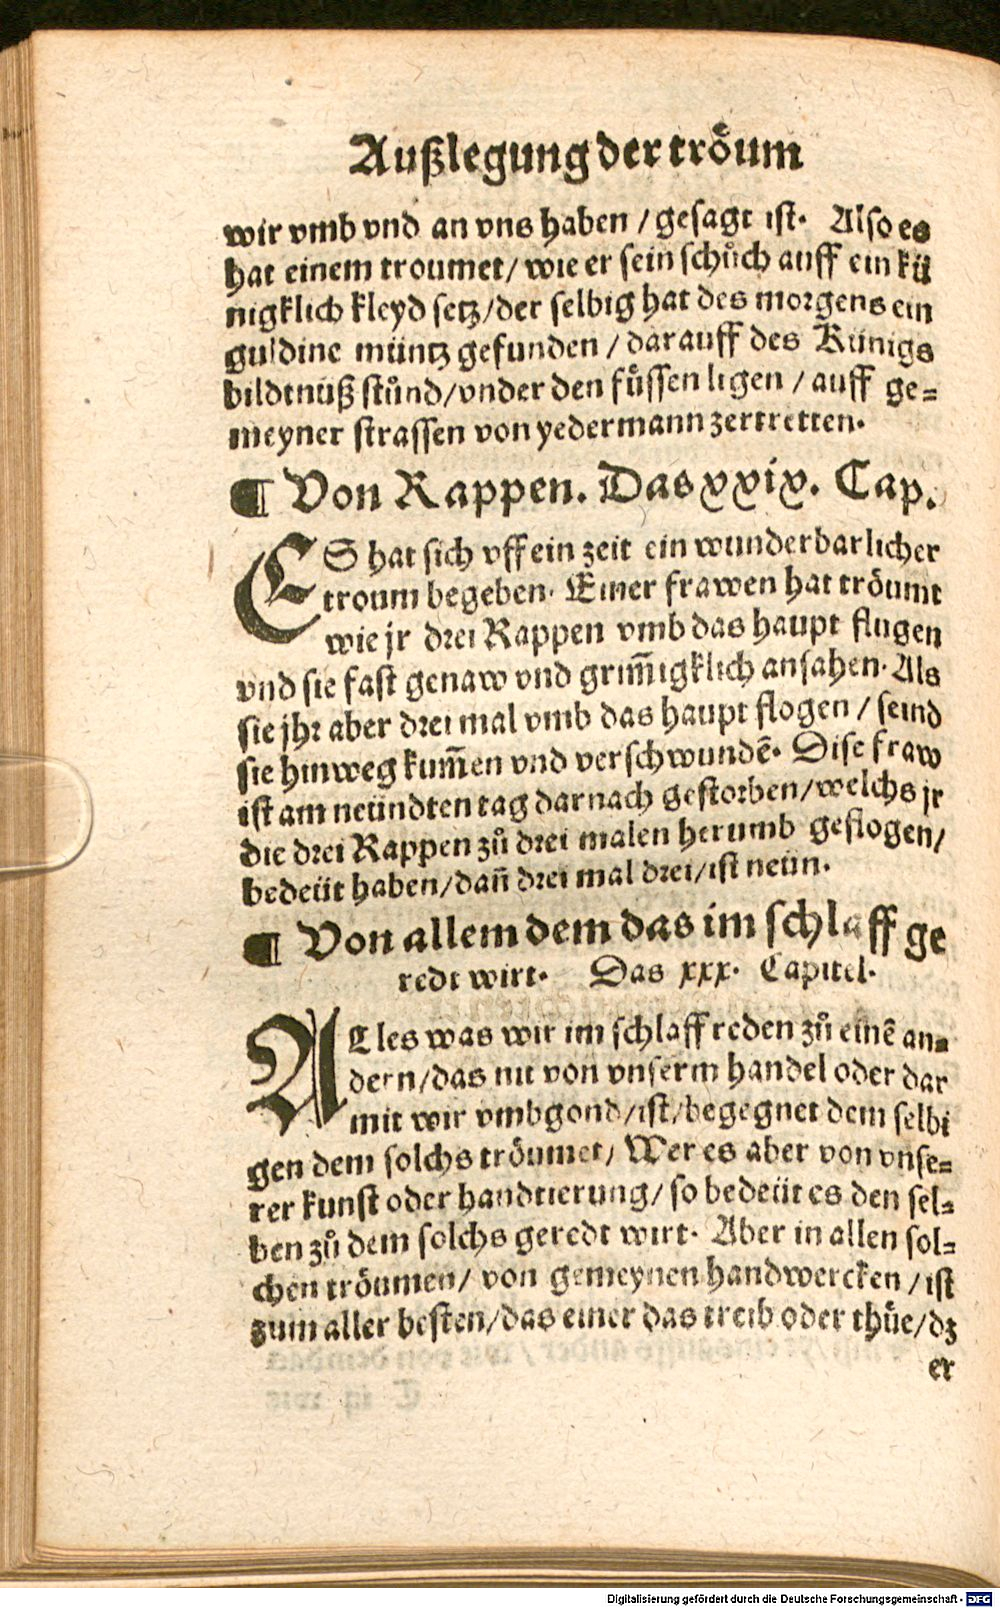 Außlegung der tröum
wir vmb vnd an vns haben / gesagt ist. Also es
hat einem troumet / wie er sein schůch auff ein kü
nigklich kleyd setz / der selbig hat des morgens ein
guldine müntz gefunden / darauff des Künigs
bildtnüß stůnd / vnder den fůssen ligen / auff ge=
meyner strassen von yedermann zertretten.
¶ Von Rappen. Das xxix. Cap.
ES hat sich vff ein zeit ein wunderbarlicher
troum begeben. Einer frawen hat tröumt
wie jr drei Rappen vmb das haupt flugen
vnd sie fast genaw vnd grim̄igklich ansahen. Als
sie jhr aber drei mal vmb das haupt flogen / seind
sie hinweg kum̄en vnd verschwundē. Dise fraw
ist am neündten tag darnach gestorben / welchs jr
die drei Rappen zů drei malen herumb geflogen /
bedeüt haben / dañ drei mal drei / ist neün.
¶ Von allem dem das im schlaff ge
redt wirt. Das xxx. Capitel.
ALles was wir im schlaff reden zů einē an=
dern / das nit von vnserm handel oder dar
mit wir vmbgond / ist / begegnet dem selbi
gen dem solchs tröumet / Wer es aber von vnse=
rer kunst oder handtierung / so bedeüt es den sel=
ben zů dem solchs geredt wirt. Aber in allen sol=
chen tröumen / von gemeynen handwercken / ist
zum aller besten / das einer das treib oder thüe / dz
er
Digitalisierung gefördert durch die Deutsche Forschungsgemeinschaft - DFG